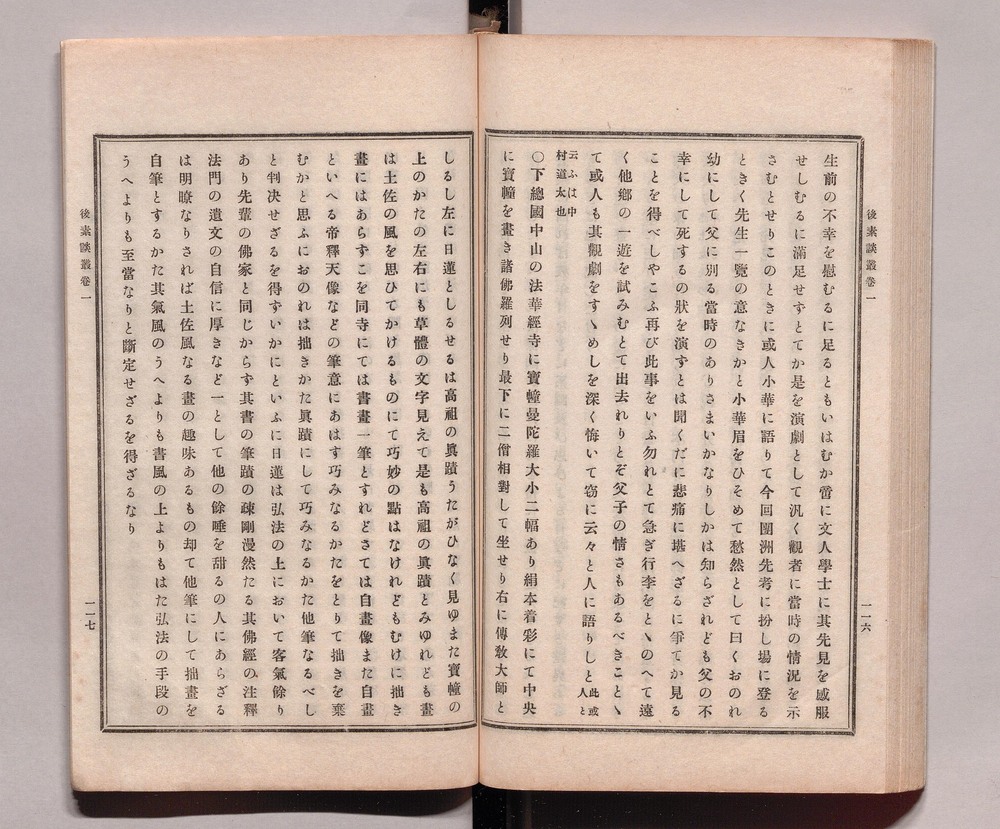 後素談叢卷一
一一六
生前の不幸を慰むるに足るともいはむか啻に文人學士に其先見を感服
せしむるに滿足せすとてか是を演劇として汎く觀者に當時の情況を示
さむとせりこのときに或人小華に語りて今回團洲先考に扮し場に登る
ときく先生一覽の意なきかと小華眉をひそめて愁然として曰くおのれ
幼にして父に別る當時のありさまいかなりしかは知らざれども父の不
幸にして死するの狀を演すとは聞くだに悲痛に堪へざるに爭てか見る
ことを得べしやこふ再び此事をいふ勿れとて急ぎ行李をとゝのへて遠
く他鄕の一遊を試みむとて出去れりとぞ父子の情さもあるべきことゝ
て或人も其觀劇をすゝめしを深く悔いて窃に云々と人に語りしと此或人と
云ふは中村道太也
〇下總國中山の法華經寺に寶幢曼陀羅大小二幅あり絹本着彩にて中央
に寶幢を畫き諸佛羅列せり最下に二僧相對して坐せり右に傳敎大師と
しるし左に日蓮としるせるは高祖の眞蹟うたがひなく見ゆまた寶幢の
上のかたの左右にも草體の文字見えて是も高祖の眞蹟とみゆれども畫
は土佐の風を思ひてかけるものにて巧妙の點はなけれどもむげに拙き
畫にはあらずこを同寺にては書畫一筆とすれどさては自畫像また自畫
といへる帝釋天像などの筆意にあはす巧みなるかたをとりて拙きを棄
むかと思ふにおのれは拙きかた眞蹟にして巧みなるかた他筆なるべし
と判決せざるを得ずいかにといふに日蓮は弘法の上において客氣餘り
あり先輩の佛家と同じからず其書の筆蹟の疎剛漫然たる其佛經の注釋
法門の遺文の自信に厚きなど一として他の餘唾を甜るの人にあらざる
は明瞭なりされば土佐風なる畫の趣味あるもの却て他筆にして拙畫を
自筆とするかた其氣風のうへよりも書風の上よりもはた弘法の手段の
うへよりも至當なりと斷定せざるを得ざるなり
後素談叢卷一
一一七